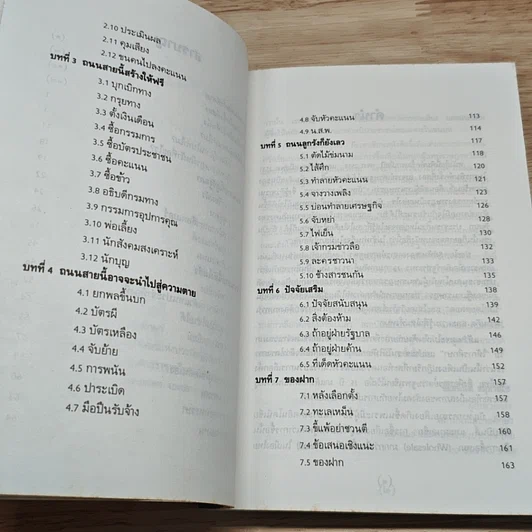 2.10 ประเมินผล
2.11 คุมเสียง
2.12 ขนคนไปลงคะแนน
บทที่ 3 ถนนสายนี้สร้างให้ฟรี
3.1 บุกเบิกทาง
3.2 กรุยทาง
3.3 ตั้งเงินเดือน
3.4 ซื้อกรรมการ
3.5 ซื้อบัตรประชาชน
3.6 ซื้อคะแนน
3.7 ซื้อข้าว
3.8 อธิบดีกรมทาง
3.9 กรรมการอุปการคุณ
3.10 พ่อเลี้ยง
3.11 นักสังคมสงเคราะห์
3.12 นักบุญ
บทที่ 4 ถนนสายนี้อาจจะนำไปสู่ความตาย
4.1 ยกพลขึ้นบก
4.2 บัตรผี
4.3 บัตรเหลือง
4.4 จับย้าย
4.5 การพนัน
4.6 ปาระเบิด
4.7 มือปืนรับจ้าง
4.8 จับหัวคะแนน 113
4.9 น.ส.พ. 114
บทที่ 5 ถนนลูกรังก็ยังเลว 117
5.1 ตัดไม้ข่มนาม 118
5.2 ไส้ศึก 120
5.3 ทำลายหัวคะแนน 121
5.4 จางวางเพลิง 123
5.5 บ่อนทำลายเศรษฐกิจ 126
5.6 จับหย่า 128
5.7 ไฟเย็น 130
5.8 เจ้ากรมข่าวลือ 132
5.9 ละครชาวนา 133
5.10 ช้างสารชนกัน 135
บทที่ 6 ปัจจัยเสริม 138
6.1 ปัจจัยสนับสนุน 139
6.2 สิ่งต้องห้าม 142
6.3 ถ้าอยู่ฝ่ายรัฐบาล 146
6.4 ถ้าอยู่ฝ่ายค้าน 149
6.5 ทีเด็ดหัวคะแนน 152
บทที่ 7 ของฝาก 157
7.1 หลังเลือกตั้ง 157
7.2 ทะเลเหม็น 158
7.3 ขี้แพ้อย่าชวนตี 160
7.4 ข้อเสนอเชิงแนะ 161
7.5 ของฝาก 163